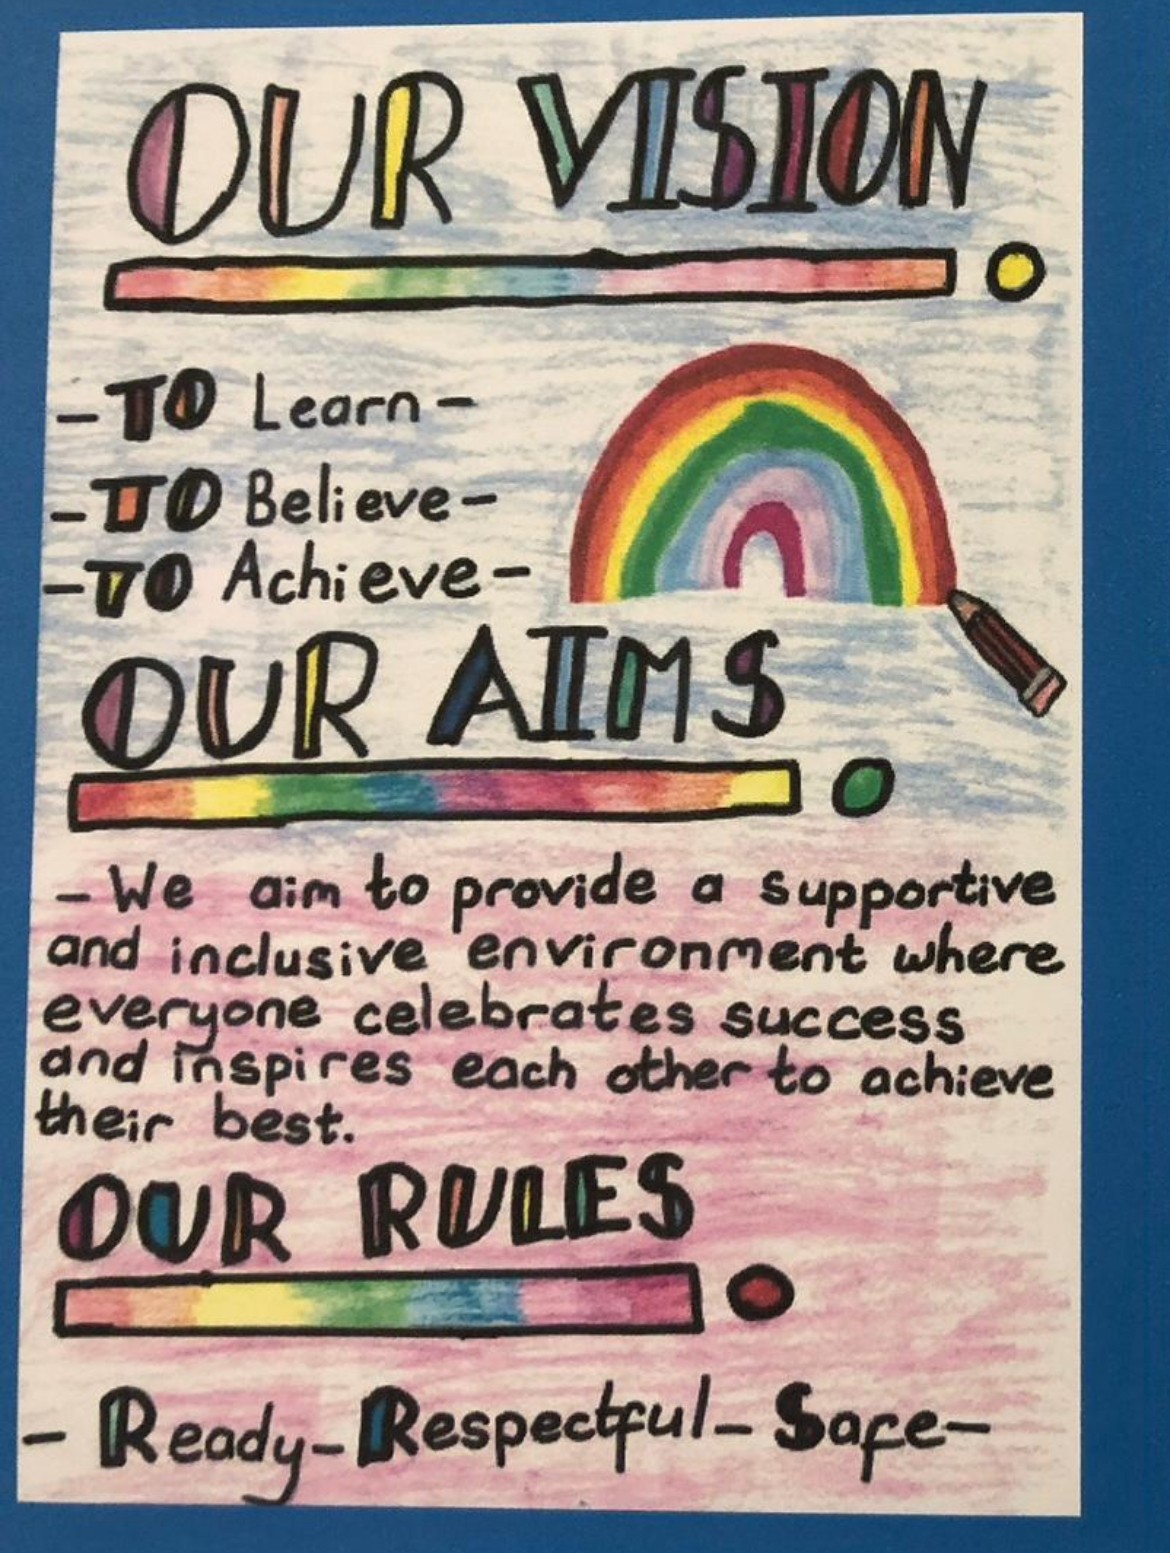 OUR VISION
-TO Learn-
-TO Believe-
-TO Achieve-
OUR AIMS
-We aim to provide a supportive
and inclusive environment where
everyone celebrates success
and inspires each other to achieve
their best.
OUR RULES
- Ready-Respectful-Safe-